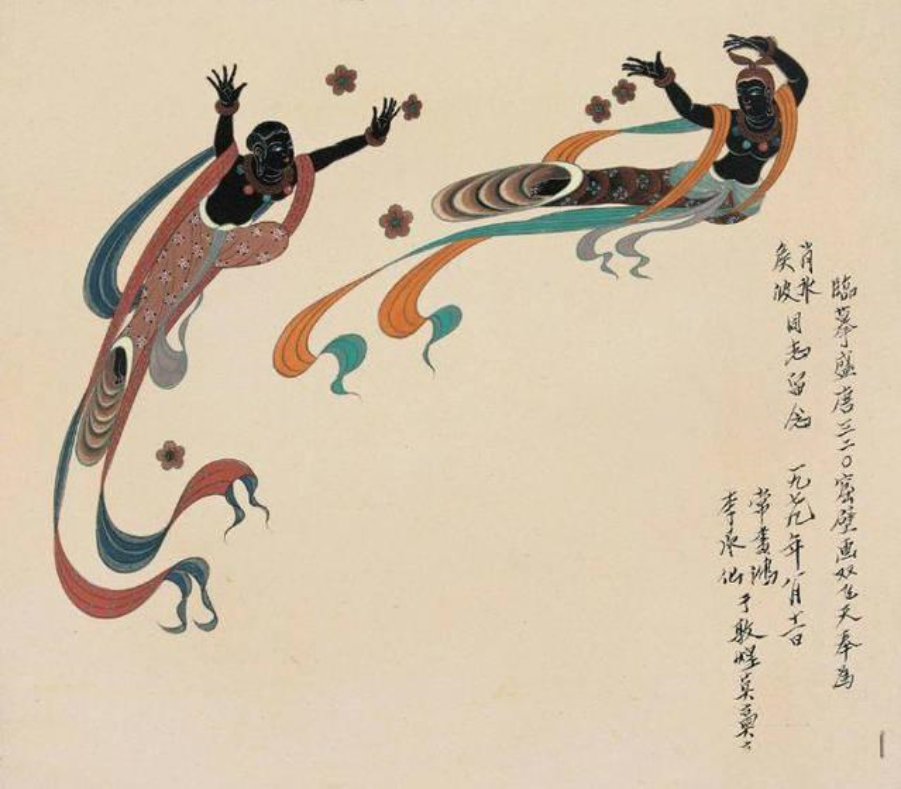 臨摹盛唐三二〇窟壁画双飞天奉為
肖氷
侯波同志留念
一九七九年八月
常書鴻
李承仙
于敦煌莫高